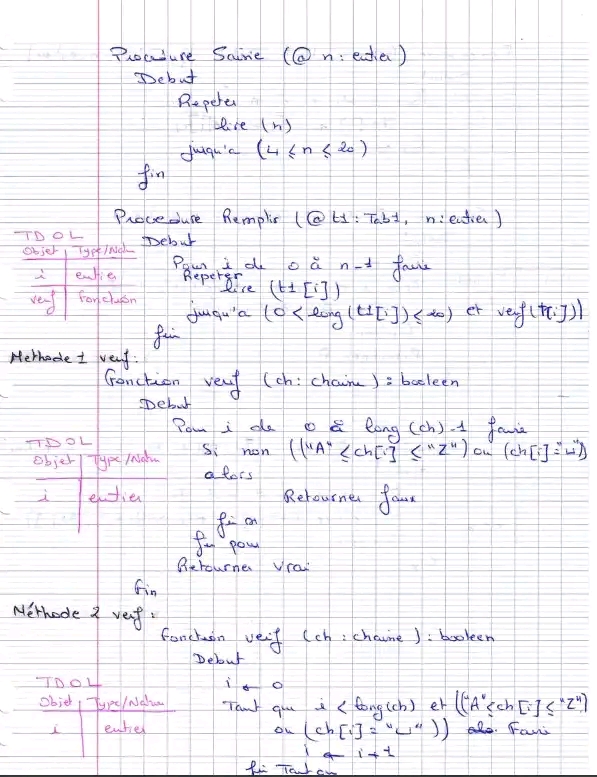 Procedure Saisie (@ n : entier)
Debut
Repeter
lire (n)
jusqu'a (4 ≤ n ≤ 20)
fin
Procedure Remplir (@ t1 : Tab1, n : entier)
TDOL
Objet | Type/Nat
i | entier
verif | fonction
Debut
Pour i de 0 à n-1 faire
Repeter
lire (t1[i])
jusqu'a (0 < long (t1[i]) ≤ 20) et verif (t[i]))
fin
Methode 1 verif :
Fonction verif (ch : chaine) : booleen
Debut
Pour i de 0 à long (ch) -1 faire
TDOL
Objet | Type/Natu
i | entier
Si non (("A" ≤ ch[i] ≤ "Z") ou (ch[i] = "␣"))
alors
Retourner faux
fin si
fin pour
Retourner vrai
Fin
Méthode 2 verif :
Fonction verif (ch : chaine) : booleen
Debut
TDOL
Objet | Type/Natu
i | entier
i ← 0
Tant que i < long(ch) et (("A" ≤ ch[i] ≤ "Z")
ou (ch[i] = "␣")) Faire
i ← i+1
fin Tant que